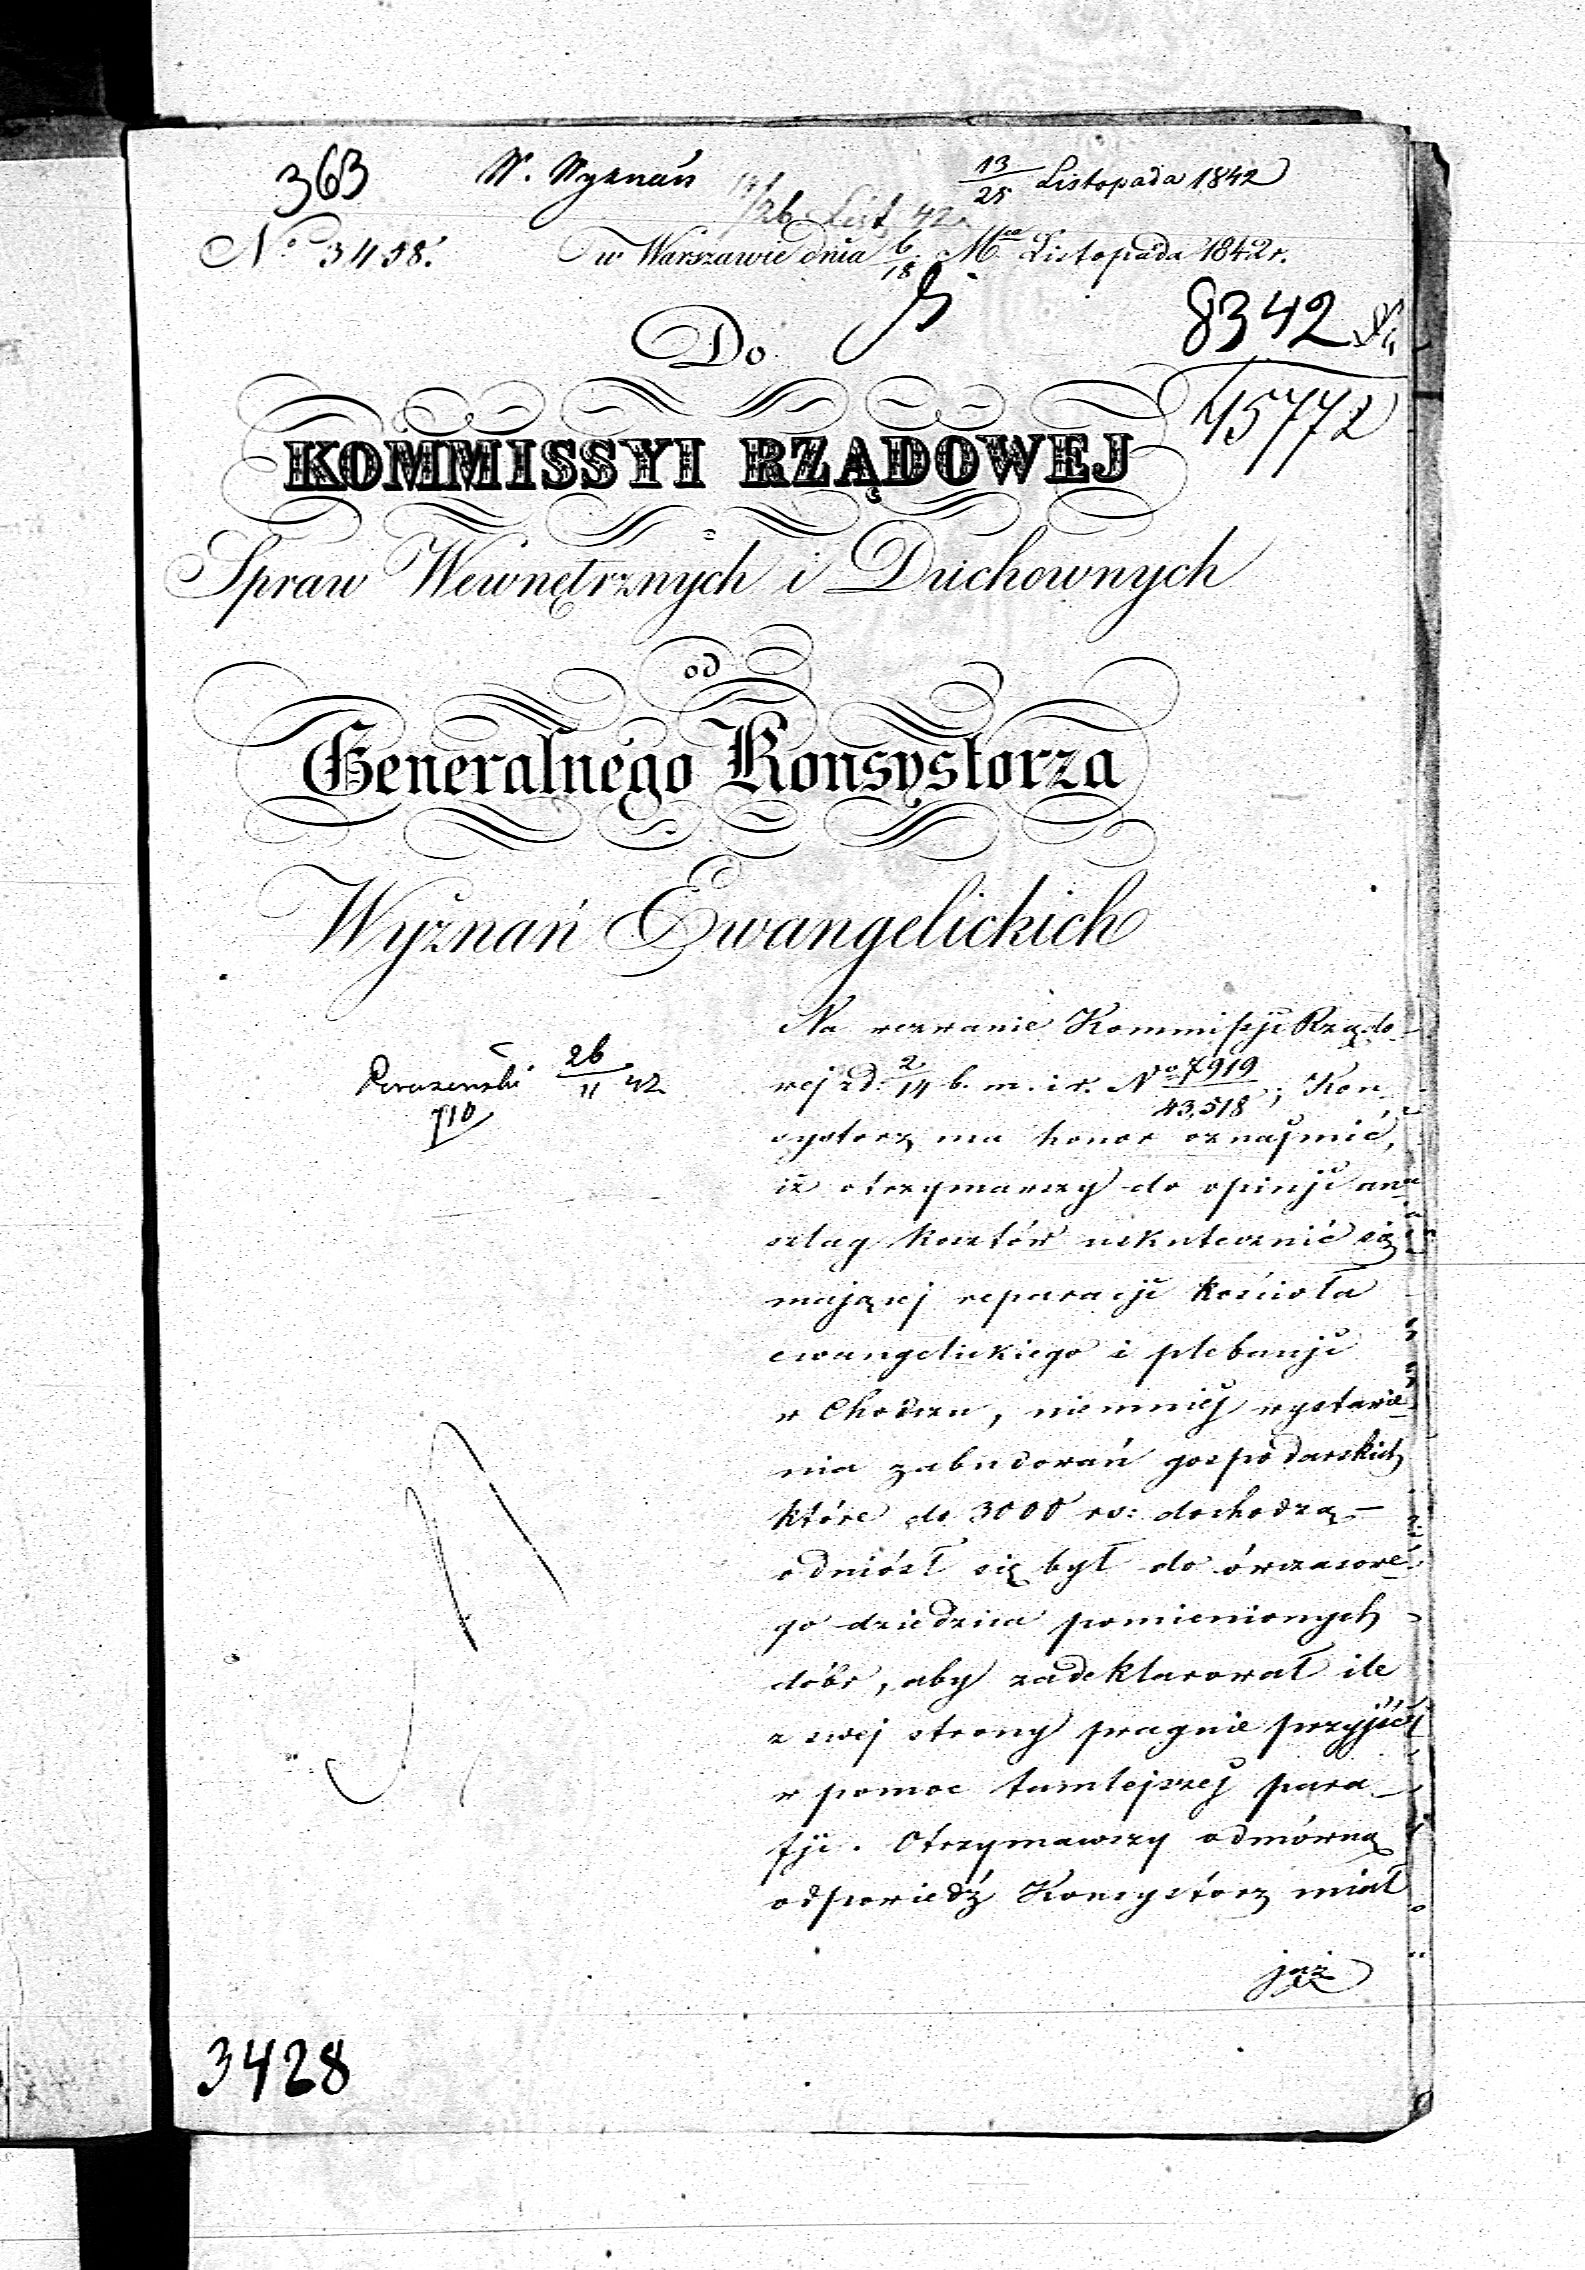 363 W. Wyznań 13/25 Listopada 1842
/26 List 42
No 3458. w Warszawie dnia 6/18 Mca Listopada 1842 r.
Do
8342
45772
KOMMISSYI RZĄDOWEJ
Spraw Wewnętrznych i Duchownych
od
Generalnego Konsystorza
Wyznań Ewangelickich
26/11 42
710
Na wezwanie Kommissyi Rządo-
wej z d. 2/14 b. m. i r. No 7919/43,518; Kon-
systorz ma honor oznajmić,
iż otrzymawszy do opinji an-
szlag kosztów uskutecznić się
mającej reparacji kościoła
ewangelickiego i plebanji
w Chodczu, niemniej wystawie-
nia zabudowań gospodarskich
które do 3000 rs: dochodzą —
odniósł się był do ówczasowe-
go dziedzica pomienionych
dóbr, aby zadeklarował ile
z swej strony pragnie przyjść
w pomoc tamtejszej para-
fji. Otrzymawszy odmówną
odpowiedź Konsystorz miał
już
3428